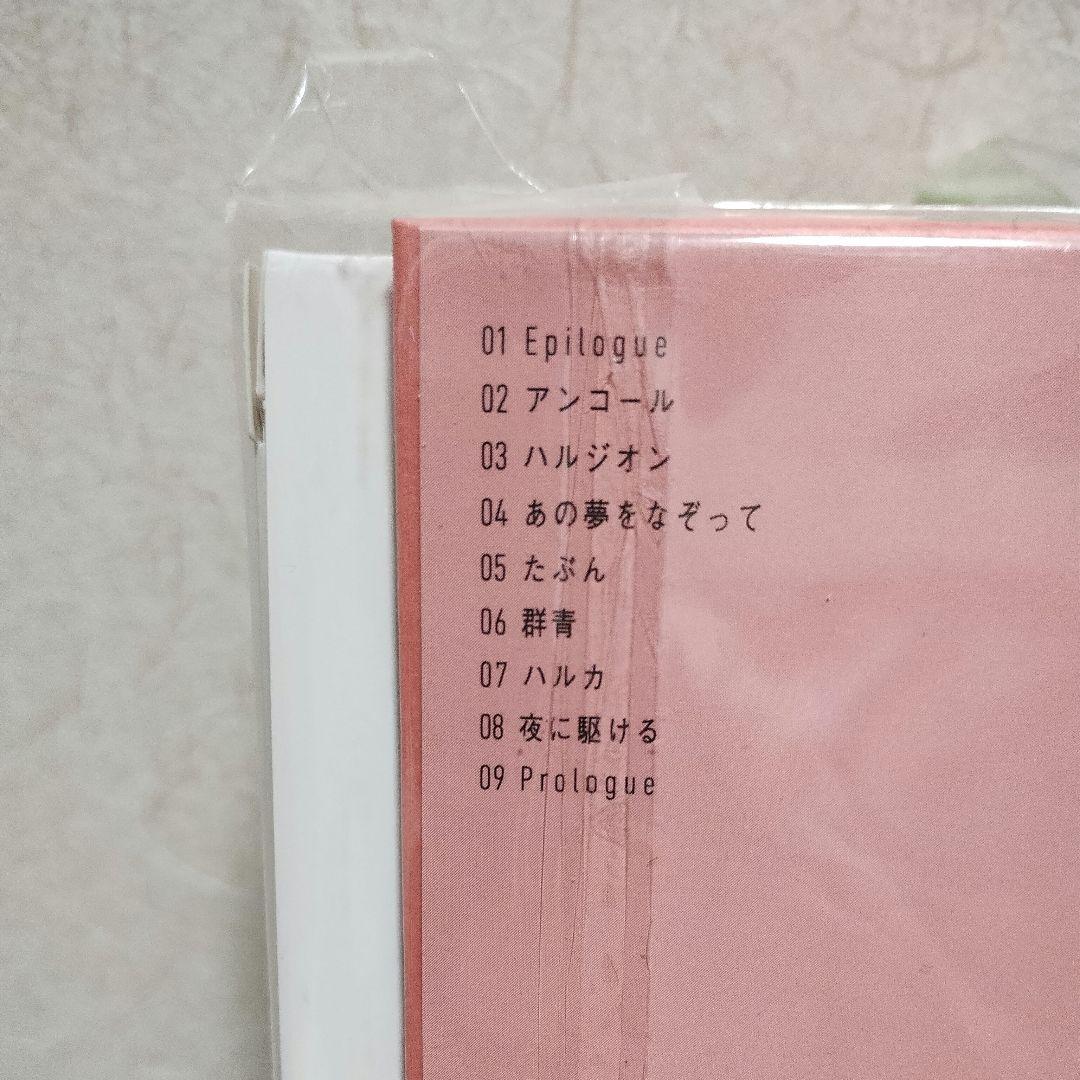 01 Epilogue
02 アンコール
03 ハルジオン
04 あの夢をなぞって
05 たぶん
06 群青
07 ハルカ
08 夜に駆ける
09 Prologue